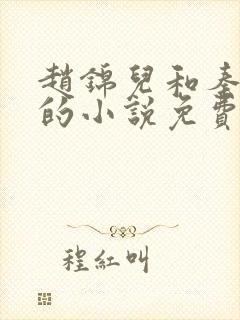 趙錦兒和秦
的小說免費
程紅叫